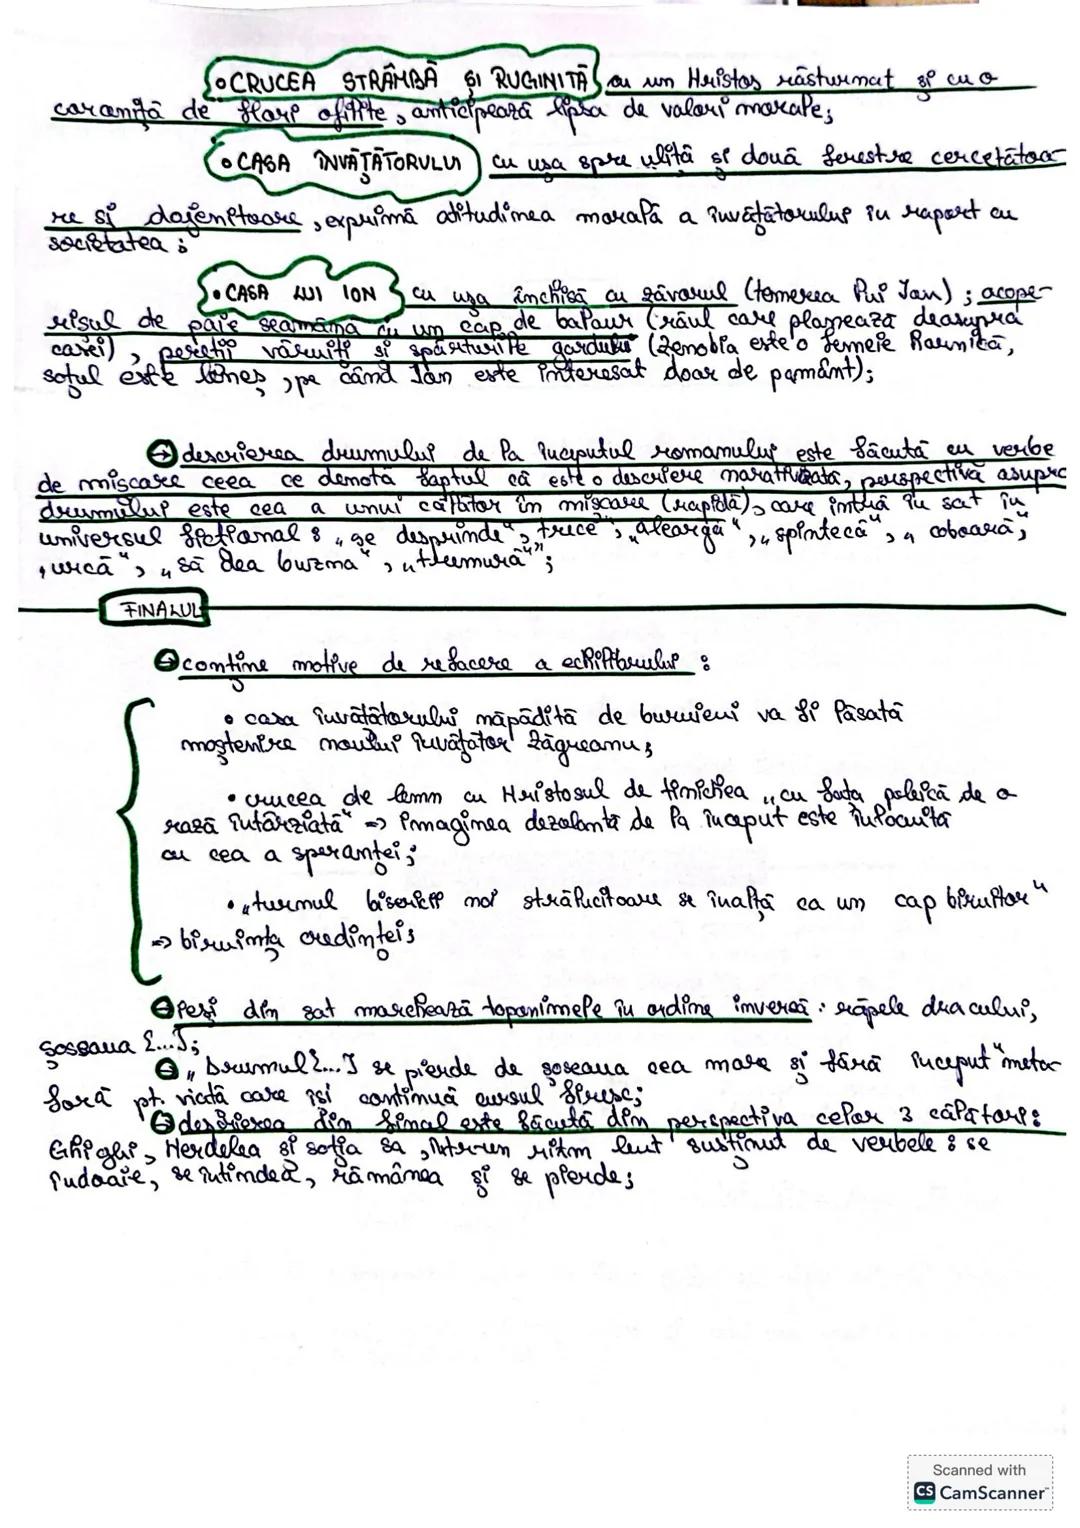 • CRUCEA STRÂMBĂ ȘI RUGINITĂ cu un Hristos răsturnat și cu o
coroniță de flori ofilite, anticipează lipsa de valori morale;
• CASA ÎNVĂȚĂTORULUI cu ușa spre uliță și două ferestre cercetătoa-
re și dojenitoare, exprimă atitudinea morală a învățătorului în raport cu
societatea;
• CASA LUI ION cu ușa închisă cu zăvorul (temerea lui Ion); acope-
rișul de paie seamănă cu un cap de balaur (răul care planează deasupra
casei), pereții văruiți și spărturile gardului (Zenobia este o femeie harnică,
soțul este leneș, pe când Ion este interesat doar de pământ);
→ descrierea drumului de la începutul romanului este făcută cu verbe
de mișcare ceea ce denotă faptul că este o descriere narativizată, perspectivă asupra
drumului este cea a unui călător în mișcare (rapidă), care intră în sat în
universul ficțional: „se desprinde", „trece", „aleargă", „spintecă", „coboară",
„urcă", „să dea buzna", „tremură";
FINALUL
→ conține motive de refacere a echilibrului:
• casa învățătorului năpădită de buruieni va fi lăsată
moștenire noului învățător Zăgreanu;
• crucea de lemn cu Hristosul de tinichea „cu fața poleică de o
rază întârziată" => imaginea dezolantă de la început este înlocuită
cu cea a speranței;
• „turnul bisericii noi strălucitoare se înalță ca un cap biruitor"
=> biruința credinței;
→ Ieși din sat marchează toponimele în ordine inversă: râpele dracului,
șoseaua [...];
→ „Drumul [...] se pierde de șoseaua cea mare și fără început" meta-
foră pt. viață care își continuă cursul firesc;
→ descrierea din final este făcută din perspectiva celor 3 călători:
Ghighi, Herdelea și soția sa, într-un ritm lent susținut de verbele: se
îndoaie, se întindea, rămânea și se pierde;
Scanned with
CS CamScanner